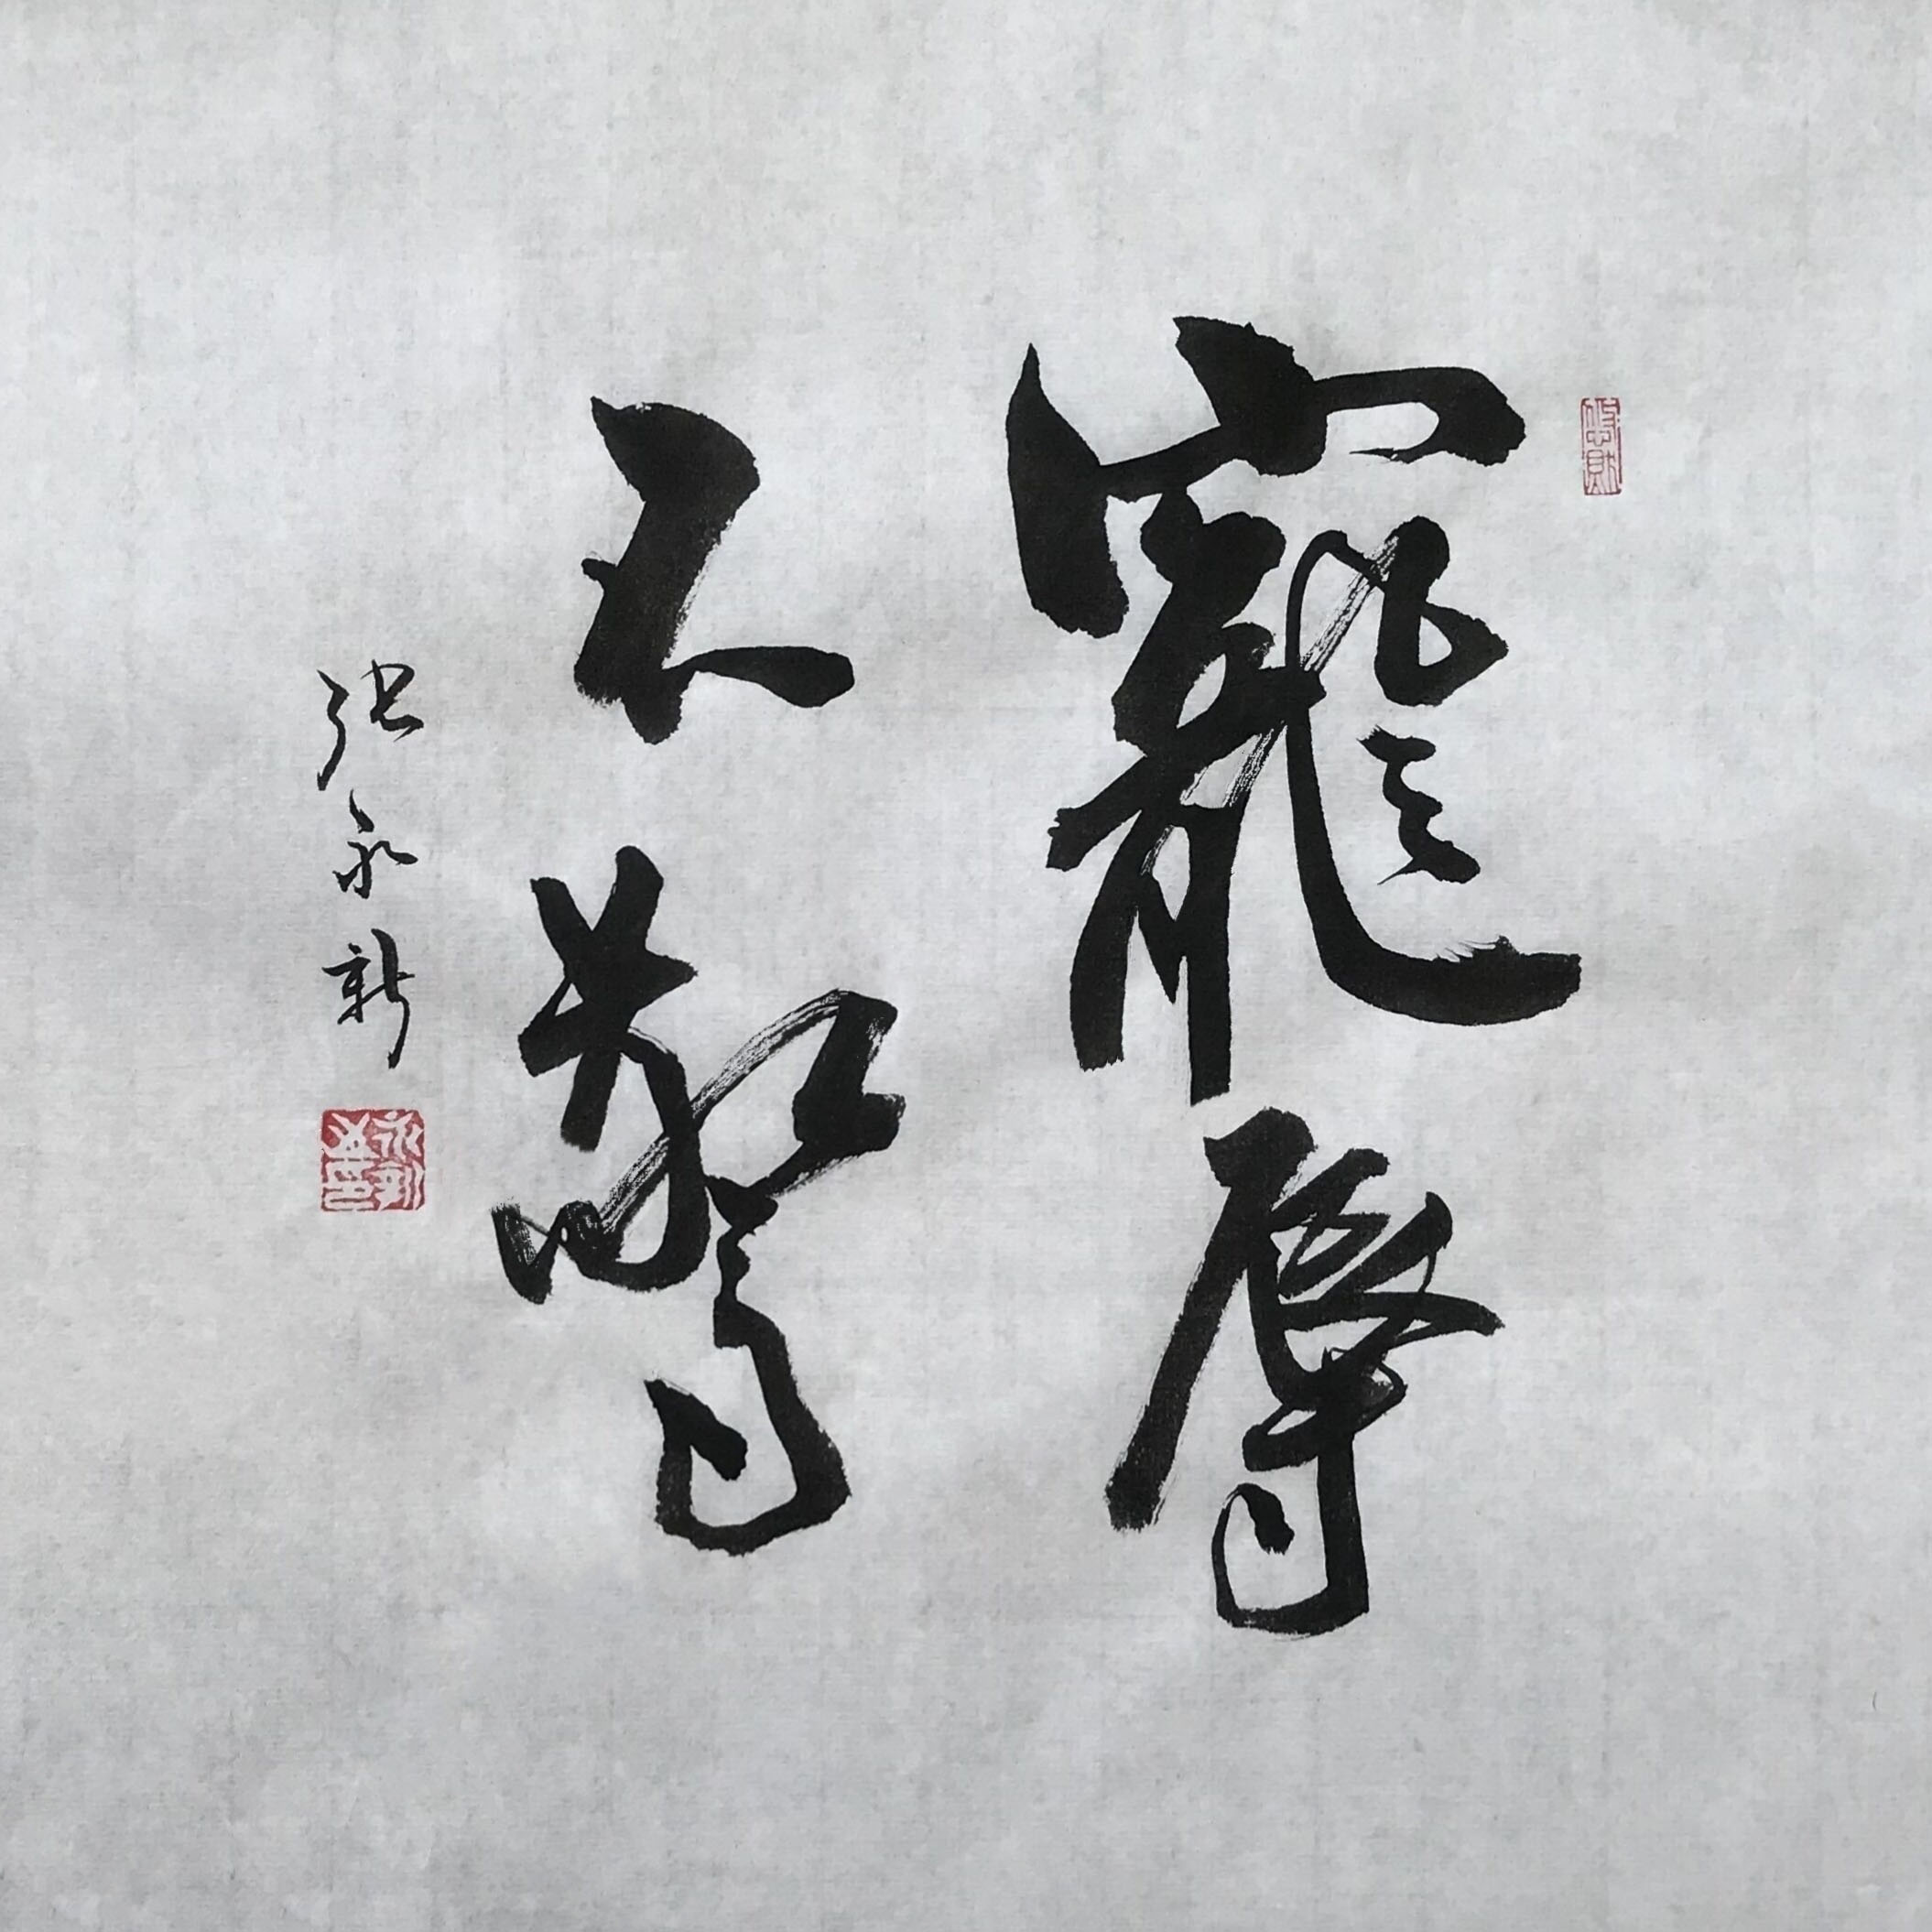 寵辱
不驚
張永新